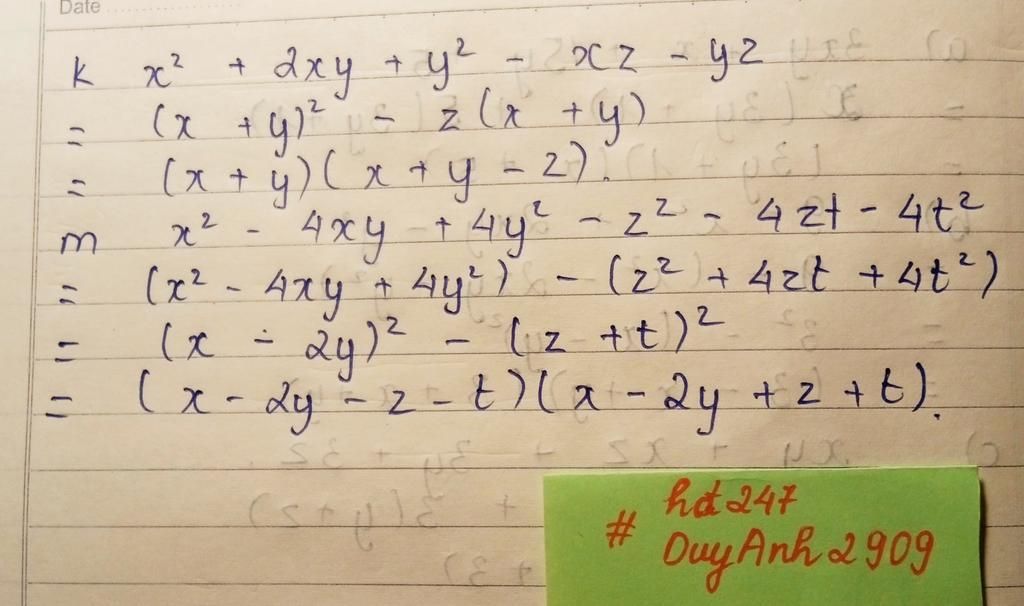 Date
k x² + 2xy + y² - xz - yz
= (x + y)² - z(x + y)
= (x + y)(x + y - z).
m x² - 4xy + 4y² - z² - 4zt - 4t²
= (x² - 4xy + 4y²) - (z² + 4zt + 4t²)
= (x - 2y)² - (z + t)²
= (x - 2y - z - t)(x - 2y + z + t).
# hdt 247
DuyAnh2909